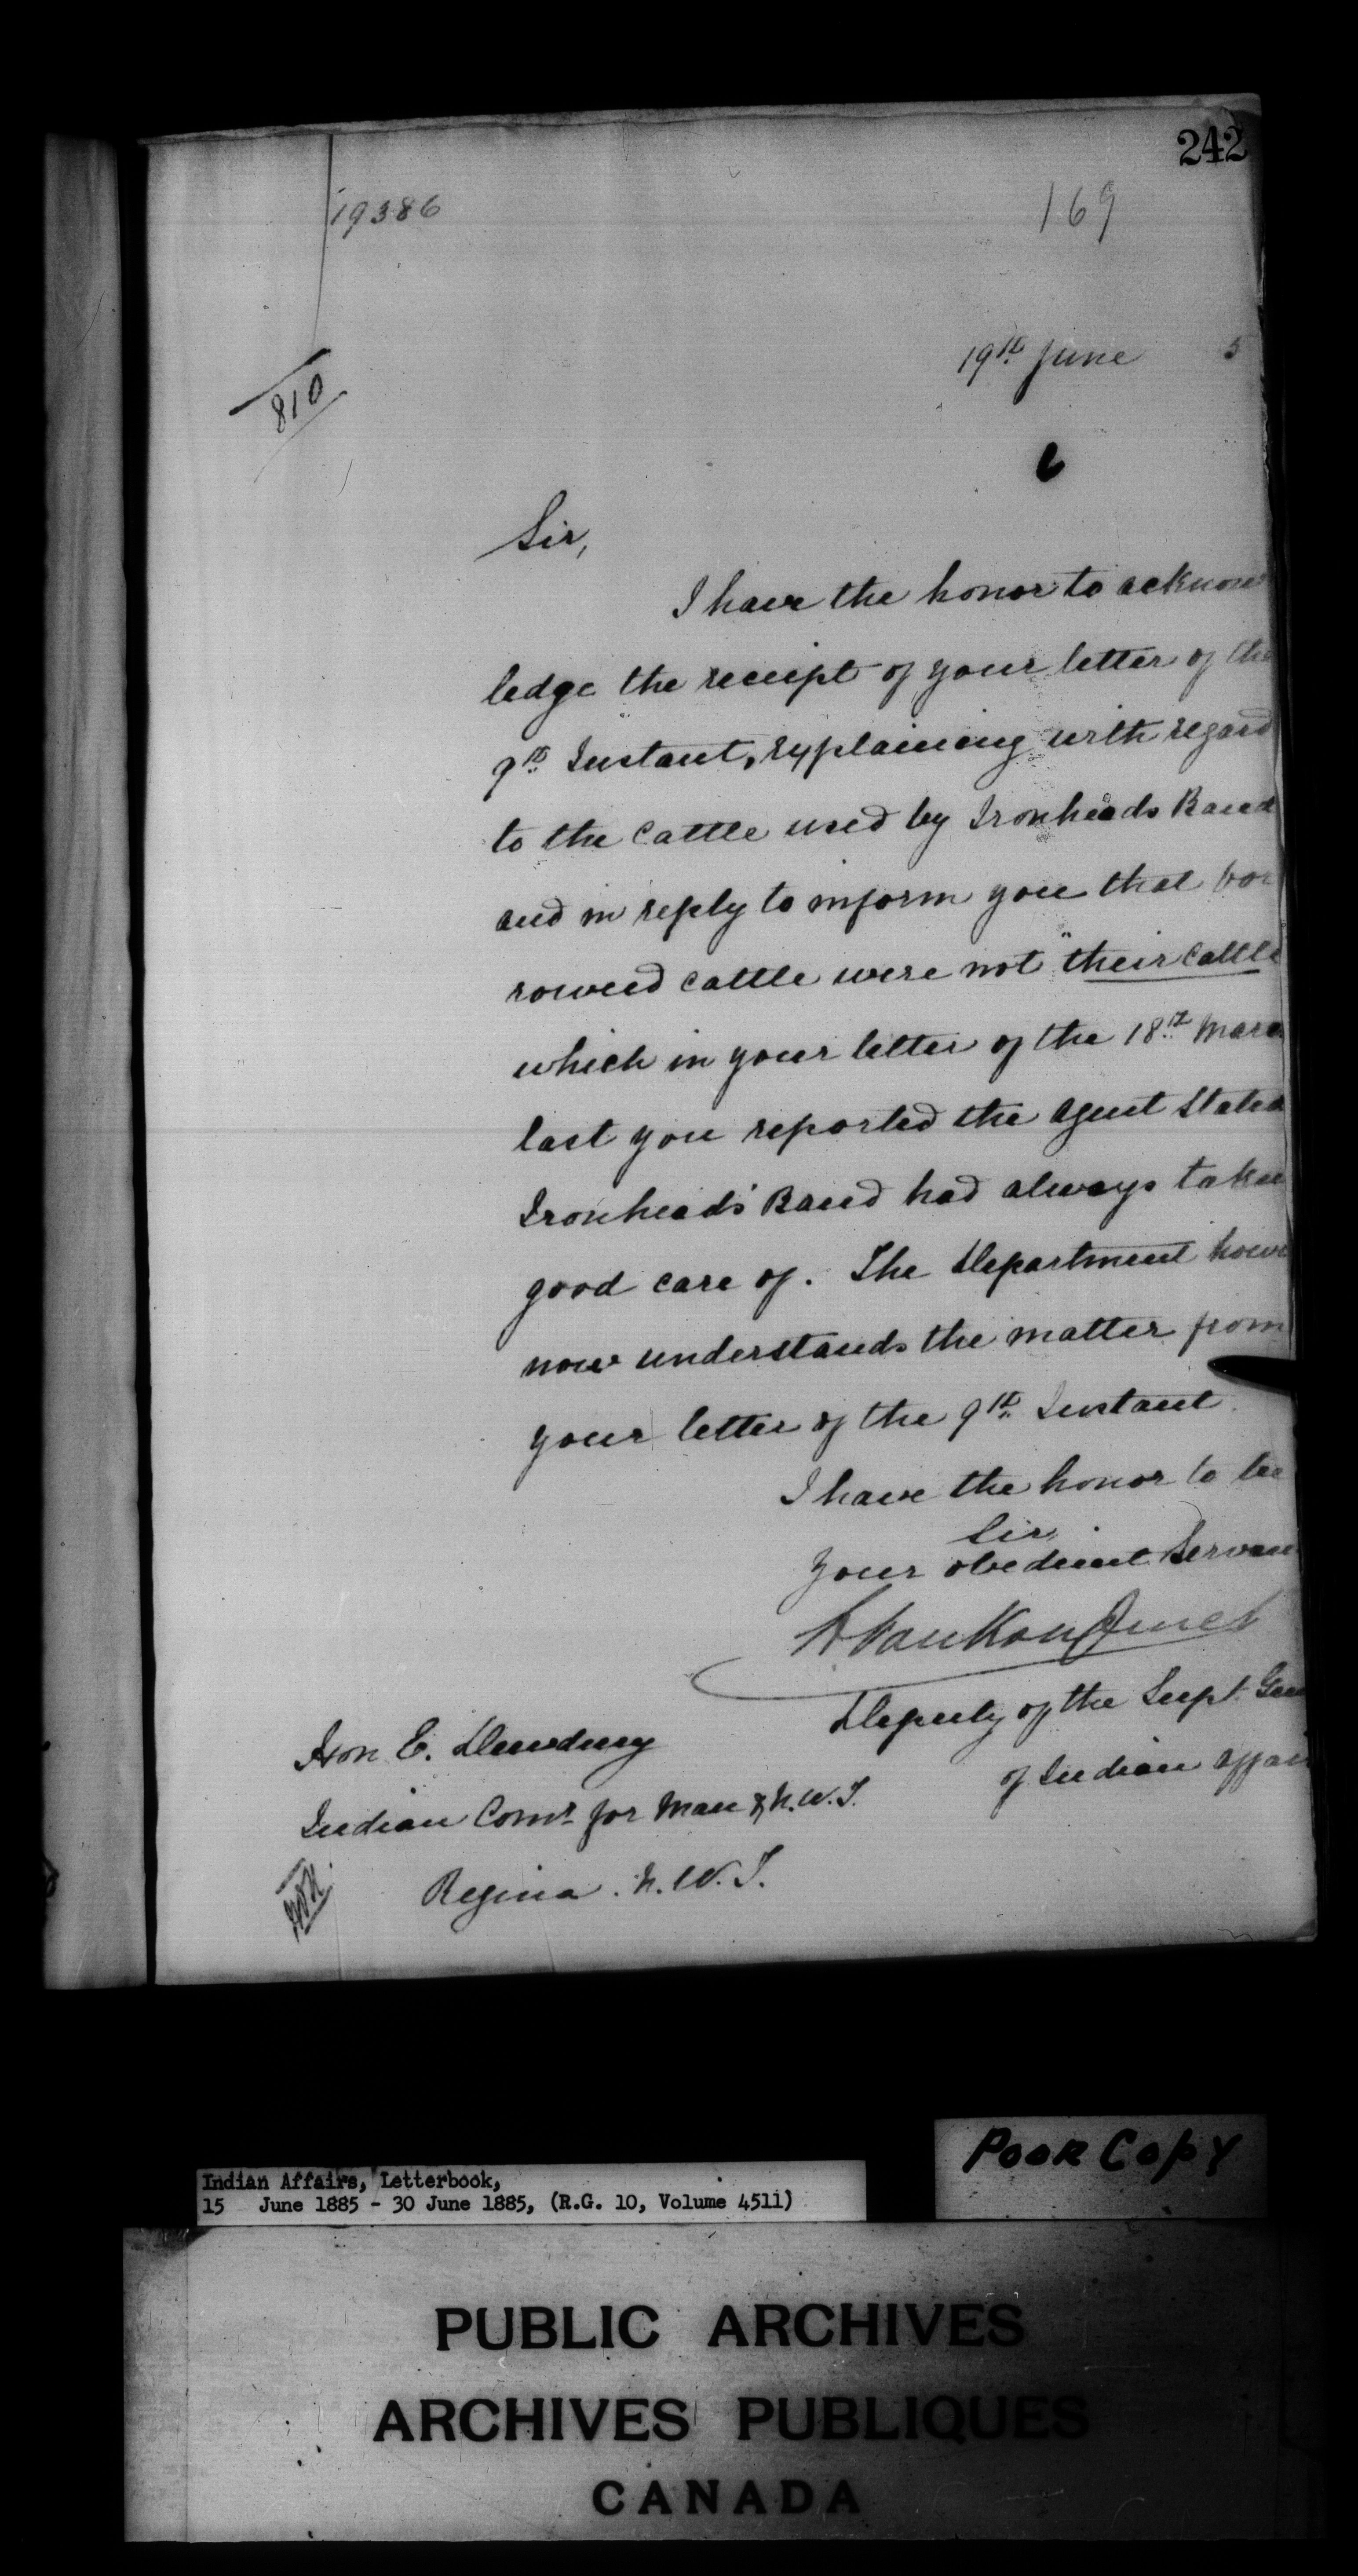 242
19386
169
19th June 5
810
Sir,
I have the honor to acknow
ledge the receipt of your letter of the
9th Instant, explaining with regard
to the cattle used by Ironheads Band
and in reply to inform you that bor
rowed cattle were not "their cattle
which in your letter of the 18th March
last you reported the Agent stated
Ironheads' Band had always taken
good care of. The Department howe
now understands the matter from
your letter of the 9th Instant.
I have the honor to be
Sir,
Your obedient Servan
L VanKoughnet
Deputy of the Supt. Gen
of Indian Affair
Hon E. Dewdney
Indian Comr. for Man & N.W.T.
Regina. N.W.T.
Poor Copy
Indian Affairs, Letterbook,
15 June 1885 - 30 June 1885, (R.G. 10, Volume 4511)
PUBLIC ARCHIVES
ARCHIVES PUBLIQUES
CANADA